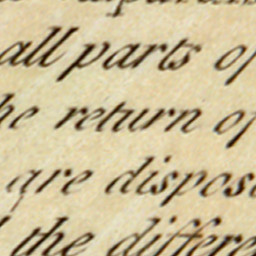 all parts of
he return of
are dispos
the differe